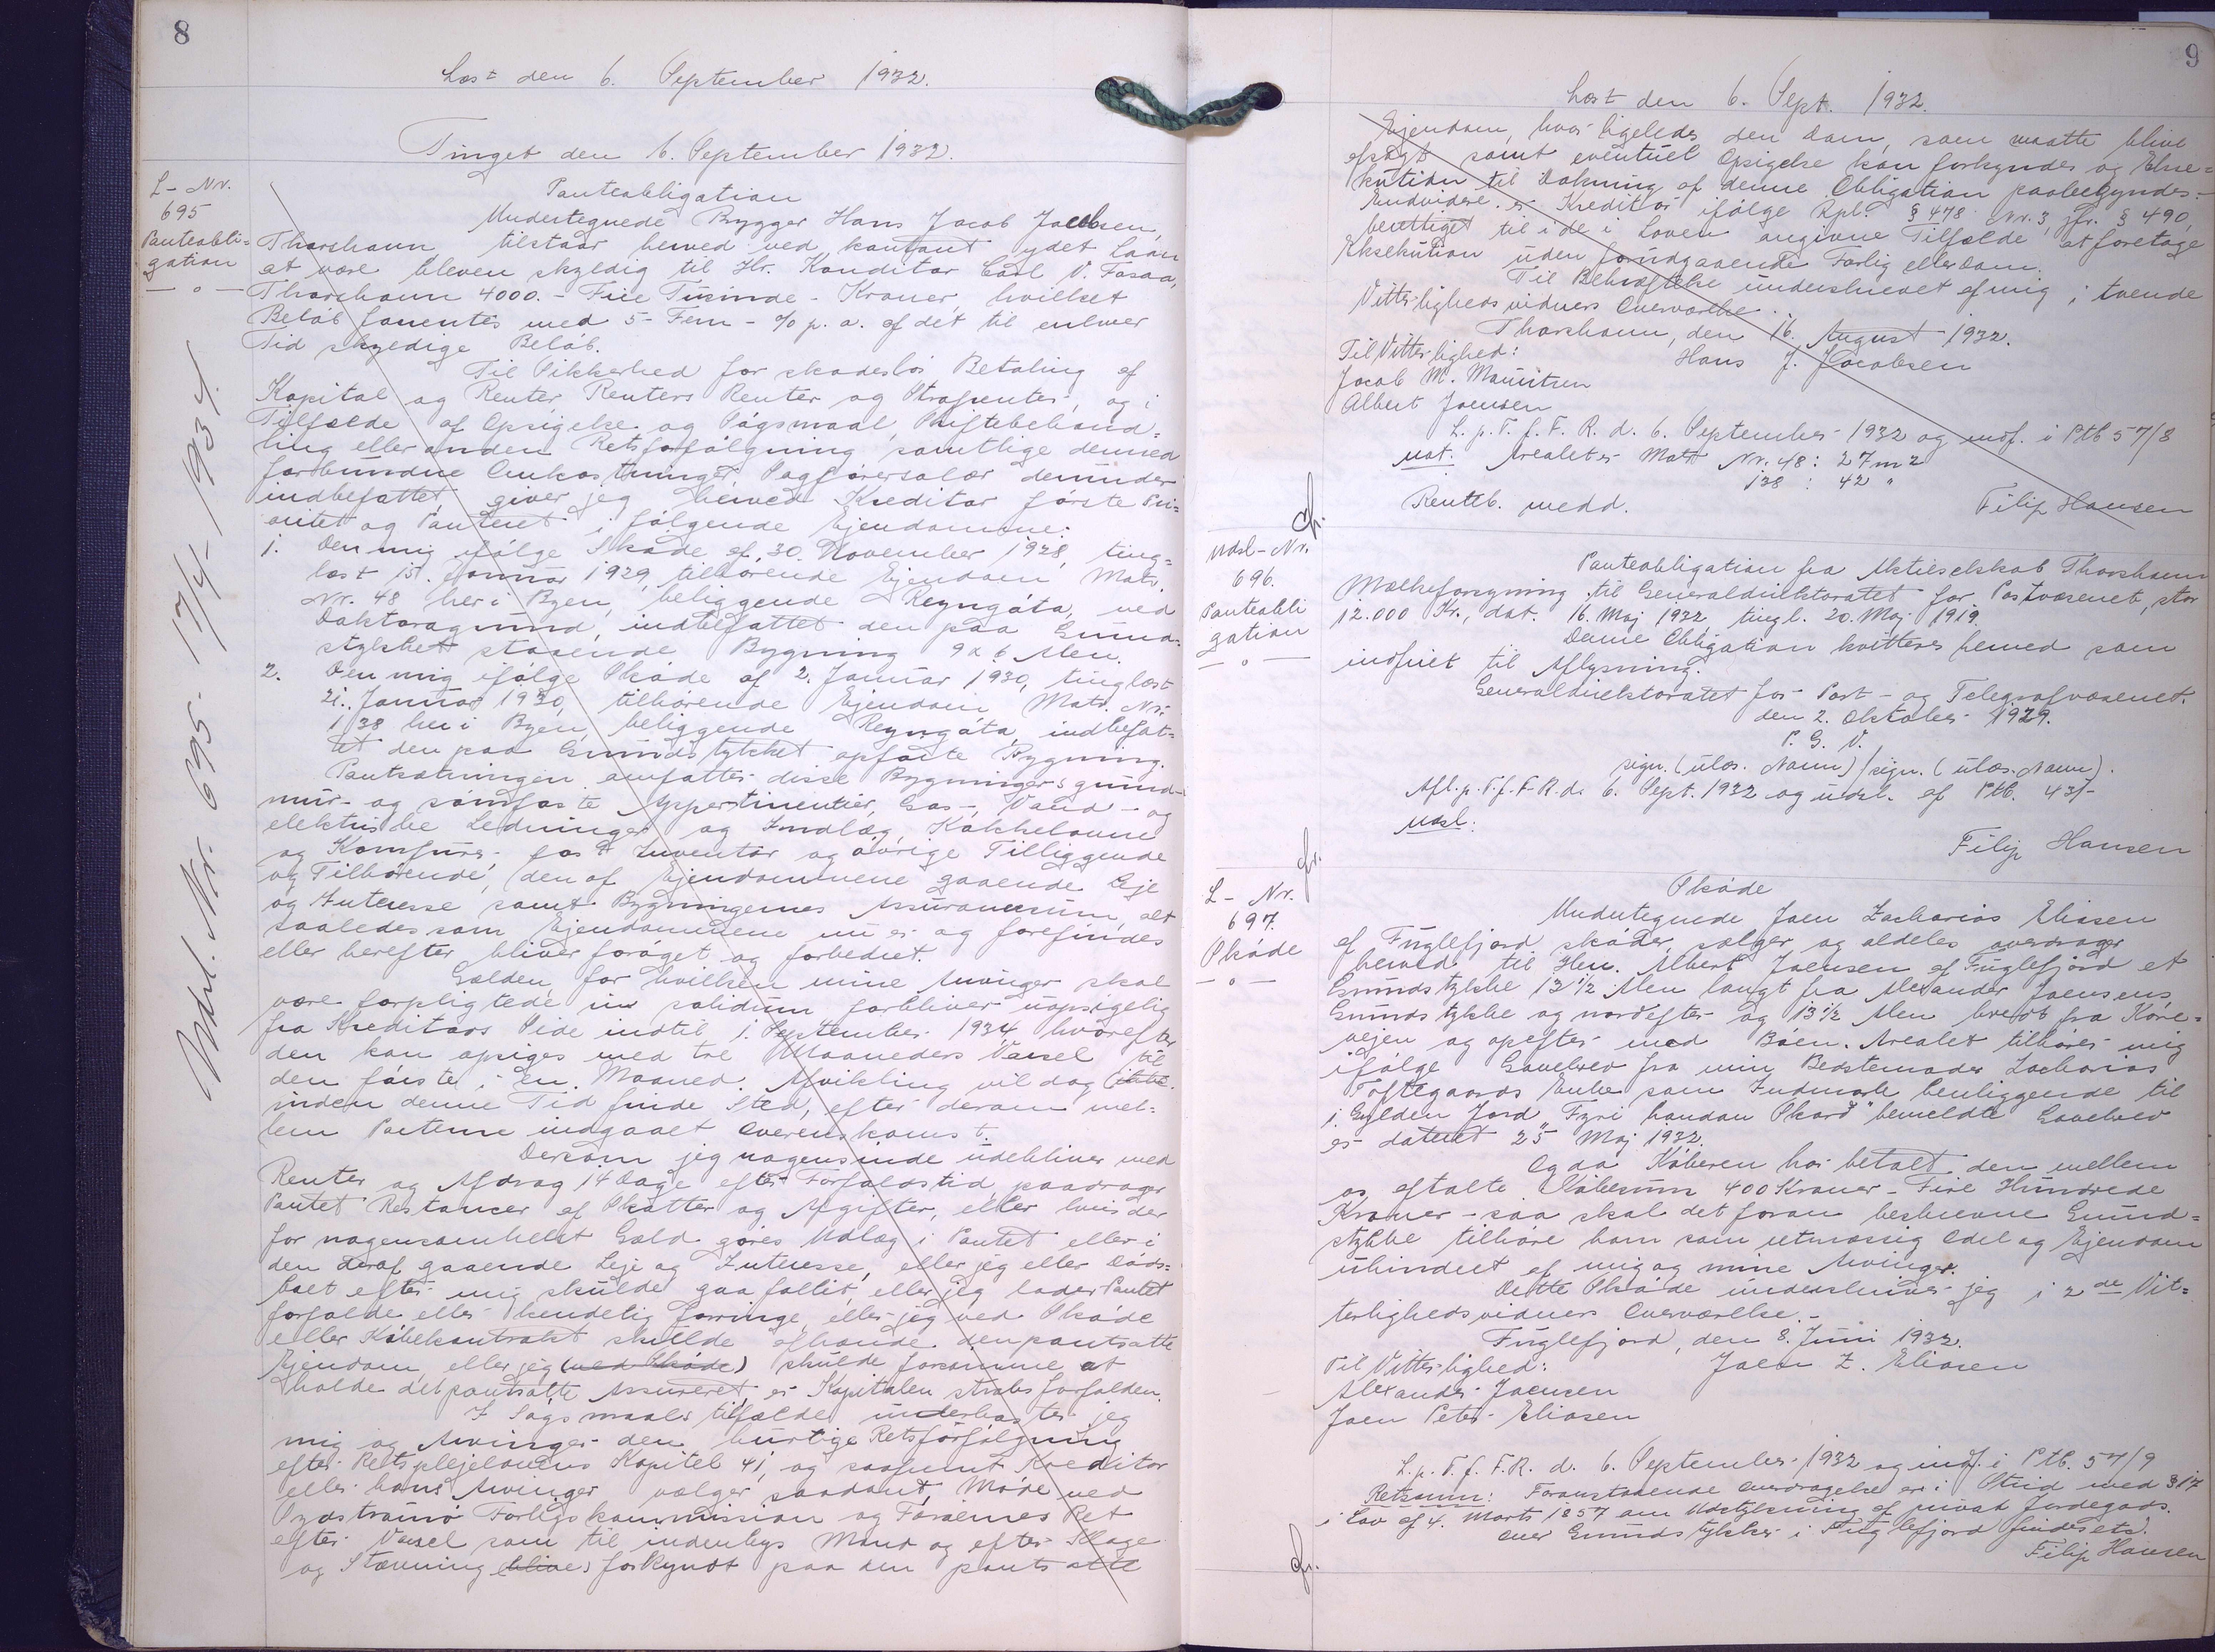 8
Læst den 6. September 1932.
Tinget den 6. September 1932.
L-Nr.
695
Panteobli-
gation
Udsl. Nr. 695. 17/4 - 1934.
Panteobligation
Undertegnede Brygger Hans Jacob Jacobsen,
Thorshavn tilstaar herved ved kontant ydet Laan
at være bleven skyldig til Hr. Konditor Carl V.
Thorshavn 4000.- Fire Tusinde - Kroner, hvilket
Beløb forrentes med 5 - Fem - % p. a. af det til enhver
Tid skyldige Beløb.
Til Sikkerhed for skadesløs Betaling af
Kapital og Renter, Renters Renter og Strafrenter, og i
Tilfælde af Opsigelse og Søgsmaal, Skiftebehand-
ling eller anden Retsforfølgning samtlige dermed
forbundne Omkostninger, Sagførersalær derunder
indbefattet, giver jeg herved Kreditor første Pri-
oritet og Panteret i følgende Ejendomme:
1. Den mig ifølge Skøde af 30. November 1928, ting-
læst 15. Januar 1929, tilhørende Ejendom Matr.
Nr. 48 her i Byen, beliggende Reyngøta, ved
Doktoragrund, indbefattet den paa Grund-
stykket staaende Bygning 9 x 6 Alen.
2. Den mig ifølge Skøde af 2. Januar 1930, tinglæst
21. Januar 1930, tilhørende Ejendom Matr. Nr.
138 her i Byen, beliggende Reyngøta, indbefat-
tet den paa Grundstykket opførte Bygning.
Pantsætningen omfatter disse Bygningers grund-
mur- og sømfaste Appertinentier, Gas-, Vand- og
elektriske Ledninger og Indlæg, Kakkelovne
og Komfurer, fast Inventar og øvrige Tilliggende
og Tilhørende, den af Ejendommene gaaende Leje
og Interesse samt Bygningernes Assurancesum, alt
saaledes som Ejendommene nu er og forefindes
eller herefter bliver forøget og forbedret.
Gælden, for hvilken mine Arvinger skal
være forpligtede in solidum forbliver uopsigelig
fra Kreditors Side indtil 1. September 1934, hvorefter
den kan opsiges med tre Maaneders Varsel til
den første i en Maaned. Afvikling vil dog (ikke
inden denne Tid finde Sted, efter derom mel-
lem Parterne indgaaet Overenskomst.
Dersom jeg nogensinde udebliver med
Renter og Afdrag 14 Dage efter Forfaldstid, paadrager
Pantet Restancer af Skatter og Afgifter, eller hvis der
for nogensomhelst Gæld gøres Udlæg i Pantet eller i
den deraf gaaende Leje og Interesse, eller jeg eller Døds-
boet efter mig skulde gaa fallit, eller jeg lader Pantet
forfalde eller kendelig forringe, eller jeg ved Skøde
eller Købekontrakt skulde afhænde den pantsatte
Ejendom, eller jeg (ved Skøde) skulde forsømme at
holde det pantsatte assureret, er Kapitalen straks forfalden.
I Søgsmaals tilfælde underkaster jeg
mig og Arvinger den hurtige Retsforfølgning
efter Retsplejelovens Kapitel 41, og saafremt Kreditor
eller hans Arvinger vælger saadant, Møde ved
Sydstrømø Forligskommission og Færøernes Ret
efter Varsel som til indenbys Mand og efter Klage
og Stævning (blive) forkyndt paa den pantsatte
9
Læst den 6. Sept. 1932.
Ejendom, hvor ligeledes den Dom, som maatte blive
afsagt samt eventuel Opsigelse kan forkyndes og Ekse-
kution til Dækning af denne Obligation paabegyndes.-
Endvidere er Kreditor ifølge Rpl. § 478 Nr. 3, jfr. § 490,
berettiget til i de i Loven angivne Tilfælde at foretage
Eksekution uden forudgaaende Forlig eller Dom.
Til Bekræftelse underskrevet af mig i tvende
Vitterlighedsvidners Overværelse.
Thorshavn, den 16. August 1932.
Til Vitterlighed:
Hans J. Jacobsen
Jacob M. Mouritsen
Albert Joensen
L. p. T. f. F. R. d. 6. September 1932 og indf. i Ptb 57/8
Not. Arealet er Matr Nr. 48: 27 m2
138 : 42 "
Rentb. medd.
Filip Hansen
Udsl-Nr.
696.
Panteobli
gation
Panteobligation fra Aktieselskab Thorshavns
Mælkeforsyning til Generaldirektoratet for Postvæsenet, stor
12.000 Kr., dat. 16. Maj 1922, tingl. 20. Maj 1919.
Denne Obligation kvitteres herved som
indfriet til Aflysning.
Generaldirektoratet for Post- og Telegrafvæsenet.
den 2. Oktober 1929.
P. G. V.
sign. (ulæs. Navn) / sign. (ulæs. Navn).
Afl. p. T. f. F. R. d. 6. Sept. 1932 og udsl. af Ptb. 43/-
Udsl.
Filip Hansen
L- Nr.
697.
Skøde
Skøde
Undertegnede Joen Zacharias Eliasen
af Fuglefjord skøder, sælger og aldeles overdrager
herved til Herr. Albert Joensen af Fuglefjord et
Grundstykke 13 1/2 Alen langt fra Alexander Joensens
Grundstykke og nordefter og 13 1/2 Alen bredt fra Køre-
vejen og opefter mod Bøen. Arealet tilhører mig
ifølge Gavebrev fra min Bedstemoder Zacharias
Toftegaards Enke som Indmark henliggende til
1. Gylden Jord "Fyri handan Skard" bemeldte Gavebrev
er dateret 25 Maj 1932.
Og da Køberen har betalt den mellem
os aftalte Købesum 400 Kroner - Fire Hundrede
Kroner - saa skal det foran beskrevne Grund-
stykke tilhøre ham som retmæssig Odel og Ejendom
uhindret af mig og mine Arvinger.
Dette Skøde underskriver jeg i 2de Vit-
terlighedsvidners Overværelse.-
Fuglefjord, den 8. Juni 1932.
Til Vitterlighed:
Joen Z. Eliasen
Alexander Joensen
Joen Peter Eliasen
L. p. T. f. F. R. d. 6. September 1932 og indf. i Ptb. 57/9
Retsanm: Foranstaaende Overdragelse er i Strid med § 17
i Lov af 4. Marts 1857 om Udstykning af privat Jordegods.
over Grundstykker i Fuglefjord findes etc.
Filip Hansen